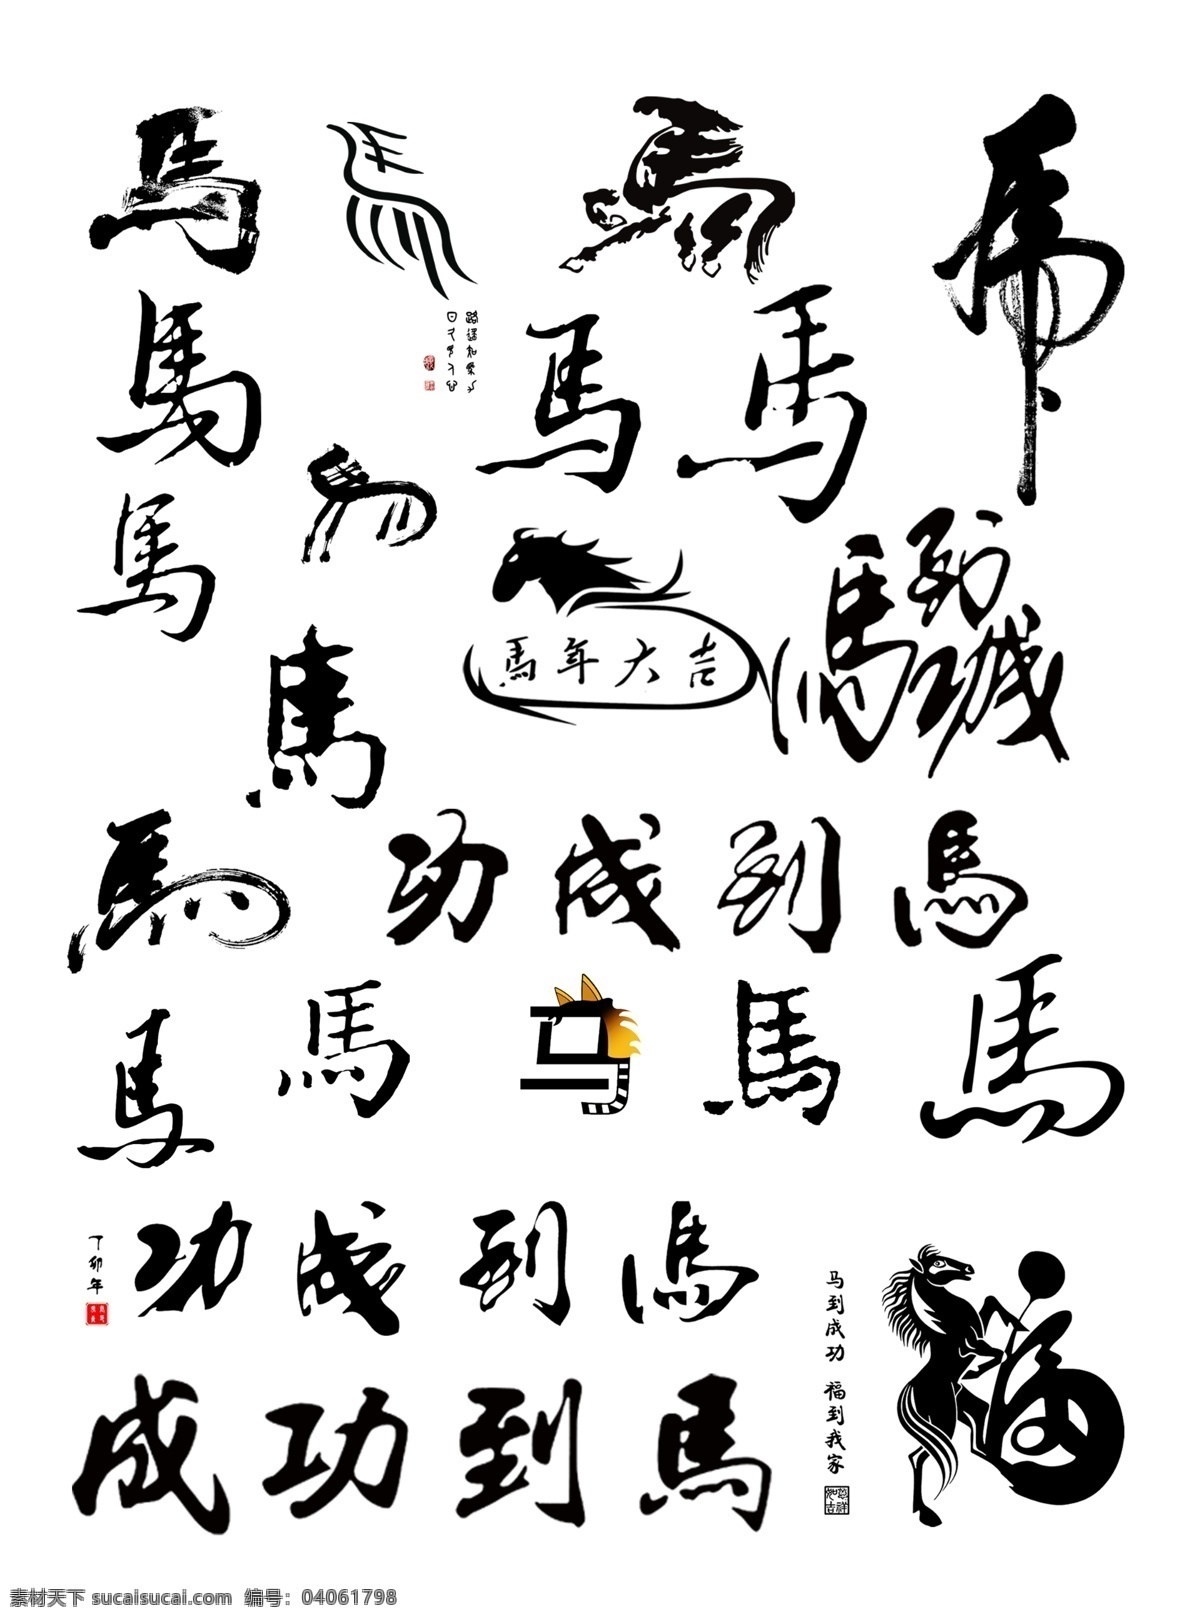 馬
馬
馬
路遥知馬力
日久見人心
馬
馬
馬
馬
馬
馬年大吉
馬到成功
馬
馬
功成到馬
馬
馬
马
馬
馬
馬
功成到馬
丁卯年
马到成功 福到我家
福
成功到馬
素材天下 sucaisucai.com 编号：04061798